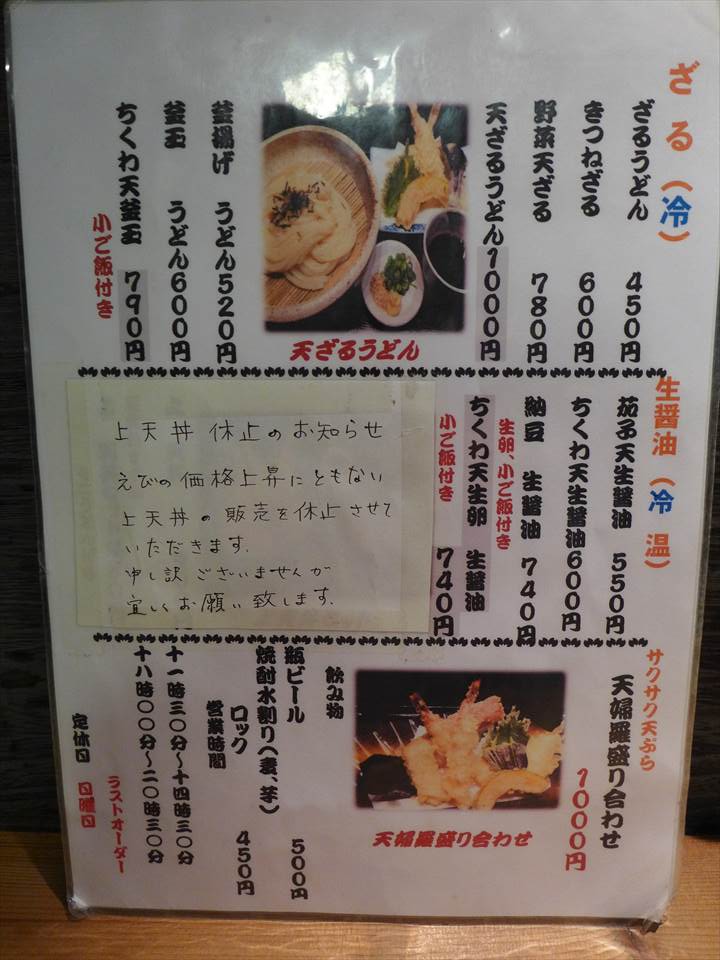 ざる（冷）
ざるうどん 450円
きつねざる 600円
野菜天ざる 780円
天ざるうどん1000円
天ざるうどん
釜揚げ うどん520円
釜玉 うどん600円
ちくわ天釜玉 790円
小ご飯付き
生醤油（冷 温）
茄子天生醤油 550円
ちくわ天生醤油600円
納豆 生醤油 740円
生卵、小ご飯付き
ちくわ天生卵 生醤油 740円
小ご飯付き
上天丼 休止のお知らせ
えびの価格上昇にともない
上天丼の販売を休止させて
いただきます.
申し訳ございませんが
宜しくお願い致します.
サクサク天ぷら
天婦羅盛り合わせ
1000円
天婦羅盛り合わせ
飲み物
瓶ビール 500円
焼酎水割り（麦、芋）
ロック 450円
営業時間
十一時三〇分〜十四時三〇分
十八時〇〇分〜二〇時三〇分
ラストオーダー
定休日 日曜日